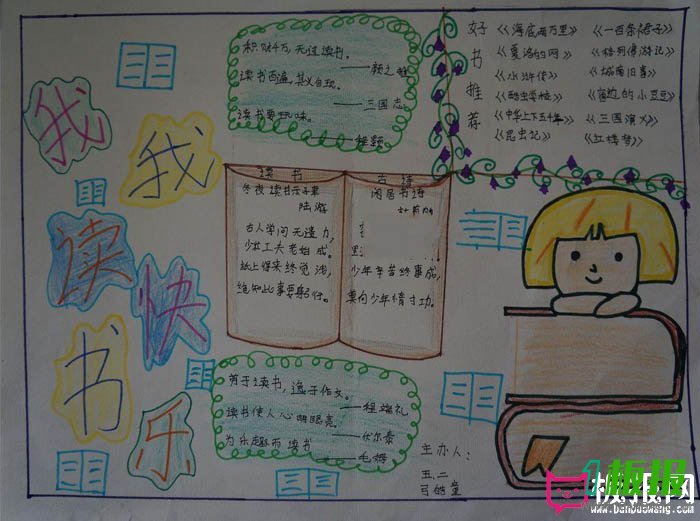 我
我
读
快
书
乐
积财千万,无过读书。
——颜之推
读书百遍,其义自现。
——三国志
读书要玩味。
——程颢
好书推荐
《海底两万里》
《一百条裙子》
《夏洛的网》
《格列佛游记》
《水浒传》
《城南旧事》
《窗边的小豆豆》
《中华上下五千年》
《三国演义》
《昆虫记》
《红楼梦》
读书
冬夜读书示子聿
陆游
古人学问无遗力,
少壮工夫老始成。
纸上得来终觉浅,
绝知此事要躬行。
古诗
闲居书诗
少年辛苦终事成,
莫向少年惰寸功。
勤于读书,逸于作文。
——程端礼
读书使人心明眼亮。
——伏尔泰
为乐趣而读书
——毛姆
主办人:
五、二
弓皓童
板报网
www.banbaowang.com